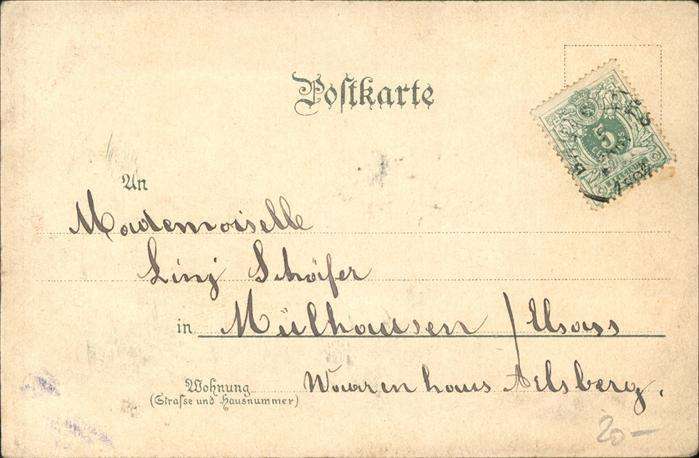 Postkarte
5
An
Mademoiselle
Schäfer
in Mülhausen / Elsass
Wohnung
(Straße und Hausnummer)
Waarenhaus
20 —